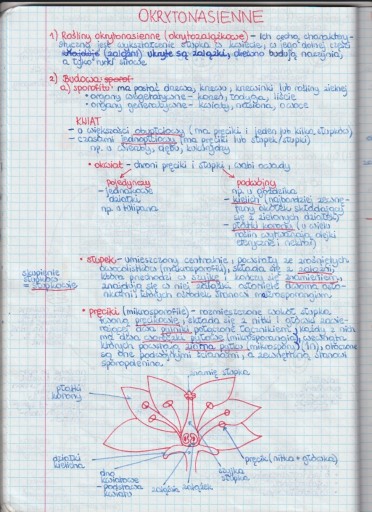 OKRYTONASIENNE
1) Rośliny okrytonasienne (okrytozalążkowe) - ich cechą charakterystyczną jest wykształcenie słupka w kwiecie, w jego dolnej części
(zalążni) ukryte są zalążki, drewno budują naczynia,
a tylko rurki sitowe
2) Budowa:
a) sporofit: ma postać drzewa, krzewu, krzewinki lub rośliny zielnej
• organy wegetatywne - korzeń, łodyga, liście
• organy generatywne - kwiaty, nasiona, owoce
KWIAT
- u większości obupłciowy (ma pręciki i jeden lub kilka słupków)
- czasami jednopłciowy (ma pręciki lub słupek/słupki)
np. u wierzby, dębu, kukurydzy
• okwiat - chroni pręciki i słupki, wabi owady
pojedynczy
- jednakowe
działki
np. u tulipana
podwójny
np. u goździka
- kielich (najbardziej zewnę-
trzny okółek składający
się z zielonych działek)
- płatki korony (u wielu
roślin wytwarzają olejki
eteryczne i nektar)
słupienie
= słupkowie
• słupek - umieszczony centralnie, powstały ze zrośniętych
owocolistków (makrosporofili), składa się z zalążni,
która przechodzi w szyjkę i kończy się znamieniem,
znajdują się w niej zalążki otoczone dwoma osłon-
kami, których ośrodek stanowi makrosporangium
• pręciki (mikrosporofile) - rozmieszczone wokół słupka
tworzą pręcikowie, składa się z nitki i główki zawie-
rającej dwa pylniki połączone łącznikiem, każdy z nich
ma dwa woreczki pyłkowe (mikrosporangia), wewnątrz
których powstają ziarna pyłku (mikrospory) (1n), otoczone
są one podwójnymi ścianami, a zewnętrzną stanowi
sporopolenina.
znamię słupka
płatki
korony
działki
kielicha
dno
kwiatowe
- podstawa
kwiatu
zalążnia
zalążek
szyjka
słupka
pręcik (nitka + główka)